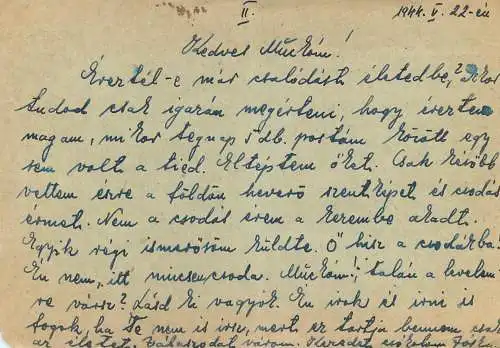 II. 1944. V. 22-én
Kedves Muckóm!
Éreztél-e már csalódást életedbe, Akkor
tudod csak igazán megérteni, hogy éreztem
magam, mikor tegnap 5 db. postám között egy
sem volt a tied. Eltéptem őket. Csak később
vettem észre a földön heverő szentképet és csodás
érmet. Nem a csodás érem a kezembe akadt.
Egyik régi ismerősöm küldte. Ő hisz a csodákba!
Én nem, itt nincsen csoda. Muckóm!, talán a levelem-
re vársz? Lásd ki vagyok. Én irok és irni is
fogok, ha Te nem is irsz, mert ez tartja bennem csak
az életet. Válaszodat várom.